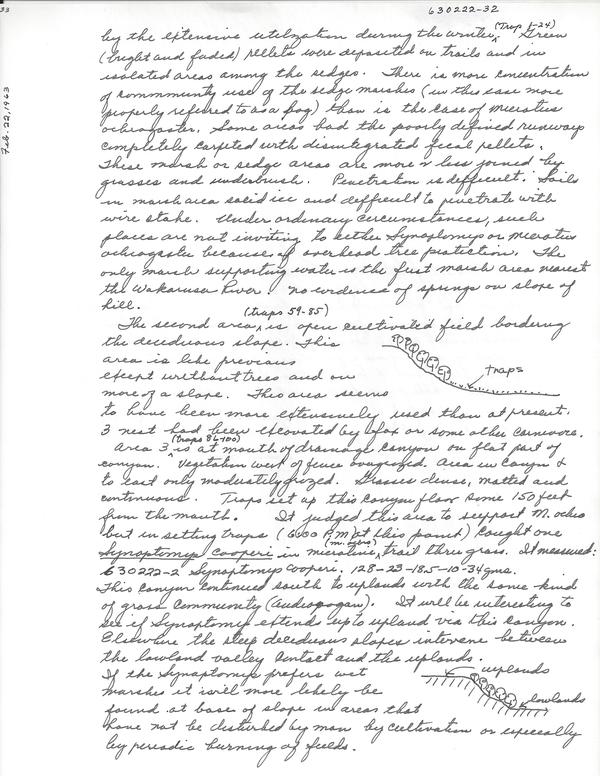 33
630222-32
Feb. 22, 1963
(Trap 1-24)
by the extensive utilization during the winter. Green
(bright and faded) pellets were deposited on trails and in
isolated areas among the sedges. There is more concentration
of community use of the sedge marshes (in this case more
properly referred to as a bog) than is the case of Microtus
ochrogaster. Some areas had the poorly defined runways
completely carpeted with disintegrated fecal pellets.
These marsh or sedge areas are more or less joined by
grasses and underbrush. Penetration is difficult. Soils
in marsh area solid ice and difficult to penetrate with
wire stake. Under ordinary circumstances, such
places are not inviting to either Synaptomys or Microtus
ochrogaster because of overhead tree protection. The
only marsh supporting water is the first marsh area nearest
the Wakarusa River. No evidence of springs on slope of
hill.
(traps 59-85)
The second area is open cultivated field bordering
the deciduous slope. This
area is like previous
except without trees and on
more of a slope. This area seems
traps
to have been more extensively used than at present.
3 nest had been excavated by a fox or some other carnivore.
(traps 86-100)
Area 3 is at mouth of drainage canyon on flat part of
canyon. Vegetation west of fence overgrazed. Area in canyon &
to east only moderately grazed. Grasses dense, matted and
continuous. Traps set up this canyon floor some 150 feet
from the mouth. It judged this area to support M. ochro
but in setting traps (6:00 P.M. at this point) caught one
Synaptomys cooperi in microtine trail thru grass. It measured:
630222-2 Synaptomys cooperi. 128-23-18.5-10-34 gms.
This canyon continued south to uplands with the same kind
of grass community (Andropogon). It will be interesting to
see if Synaptomys extends up to upland via this canyon.
Elsewhere the steep deciduous slopes intervene between
the lowland valley contact and the uplands.
If the Synaptomys prefers wet
marshes it will more likely be
found at base of slope in areas that
uplands
lowlands
have not be disturbed by man by cultivation or especially
by periodic burning of fields.